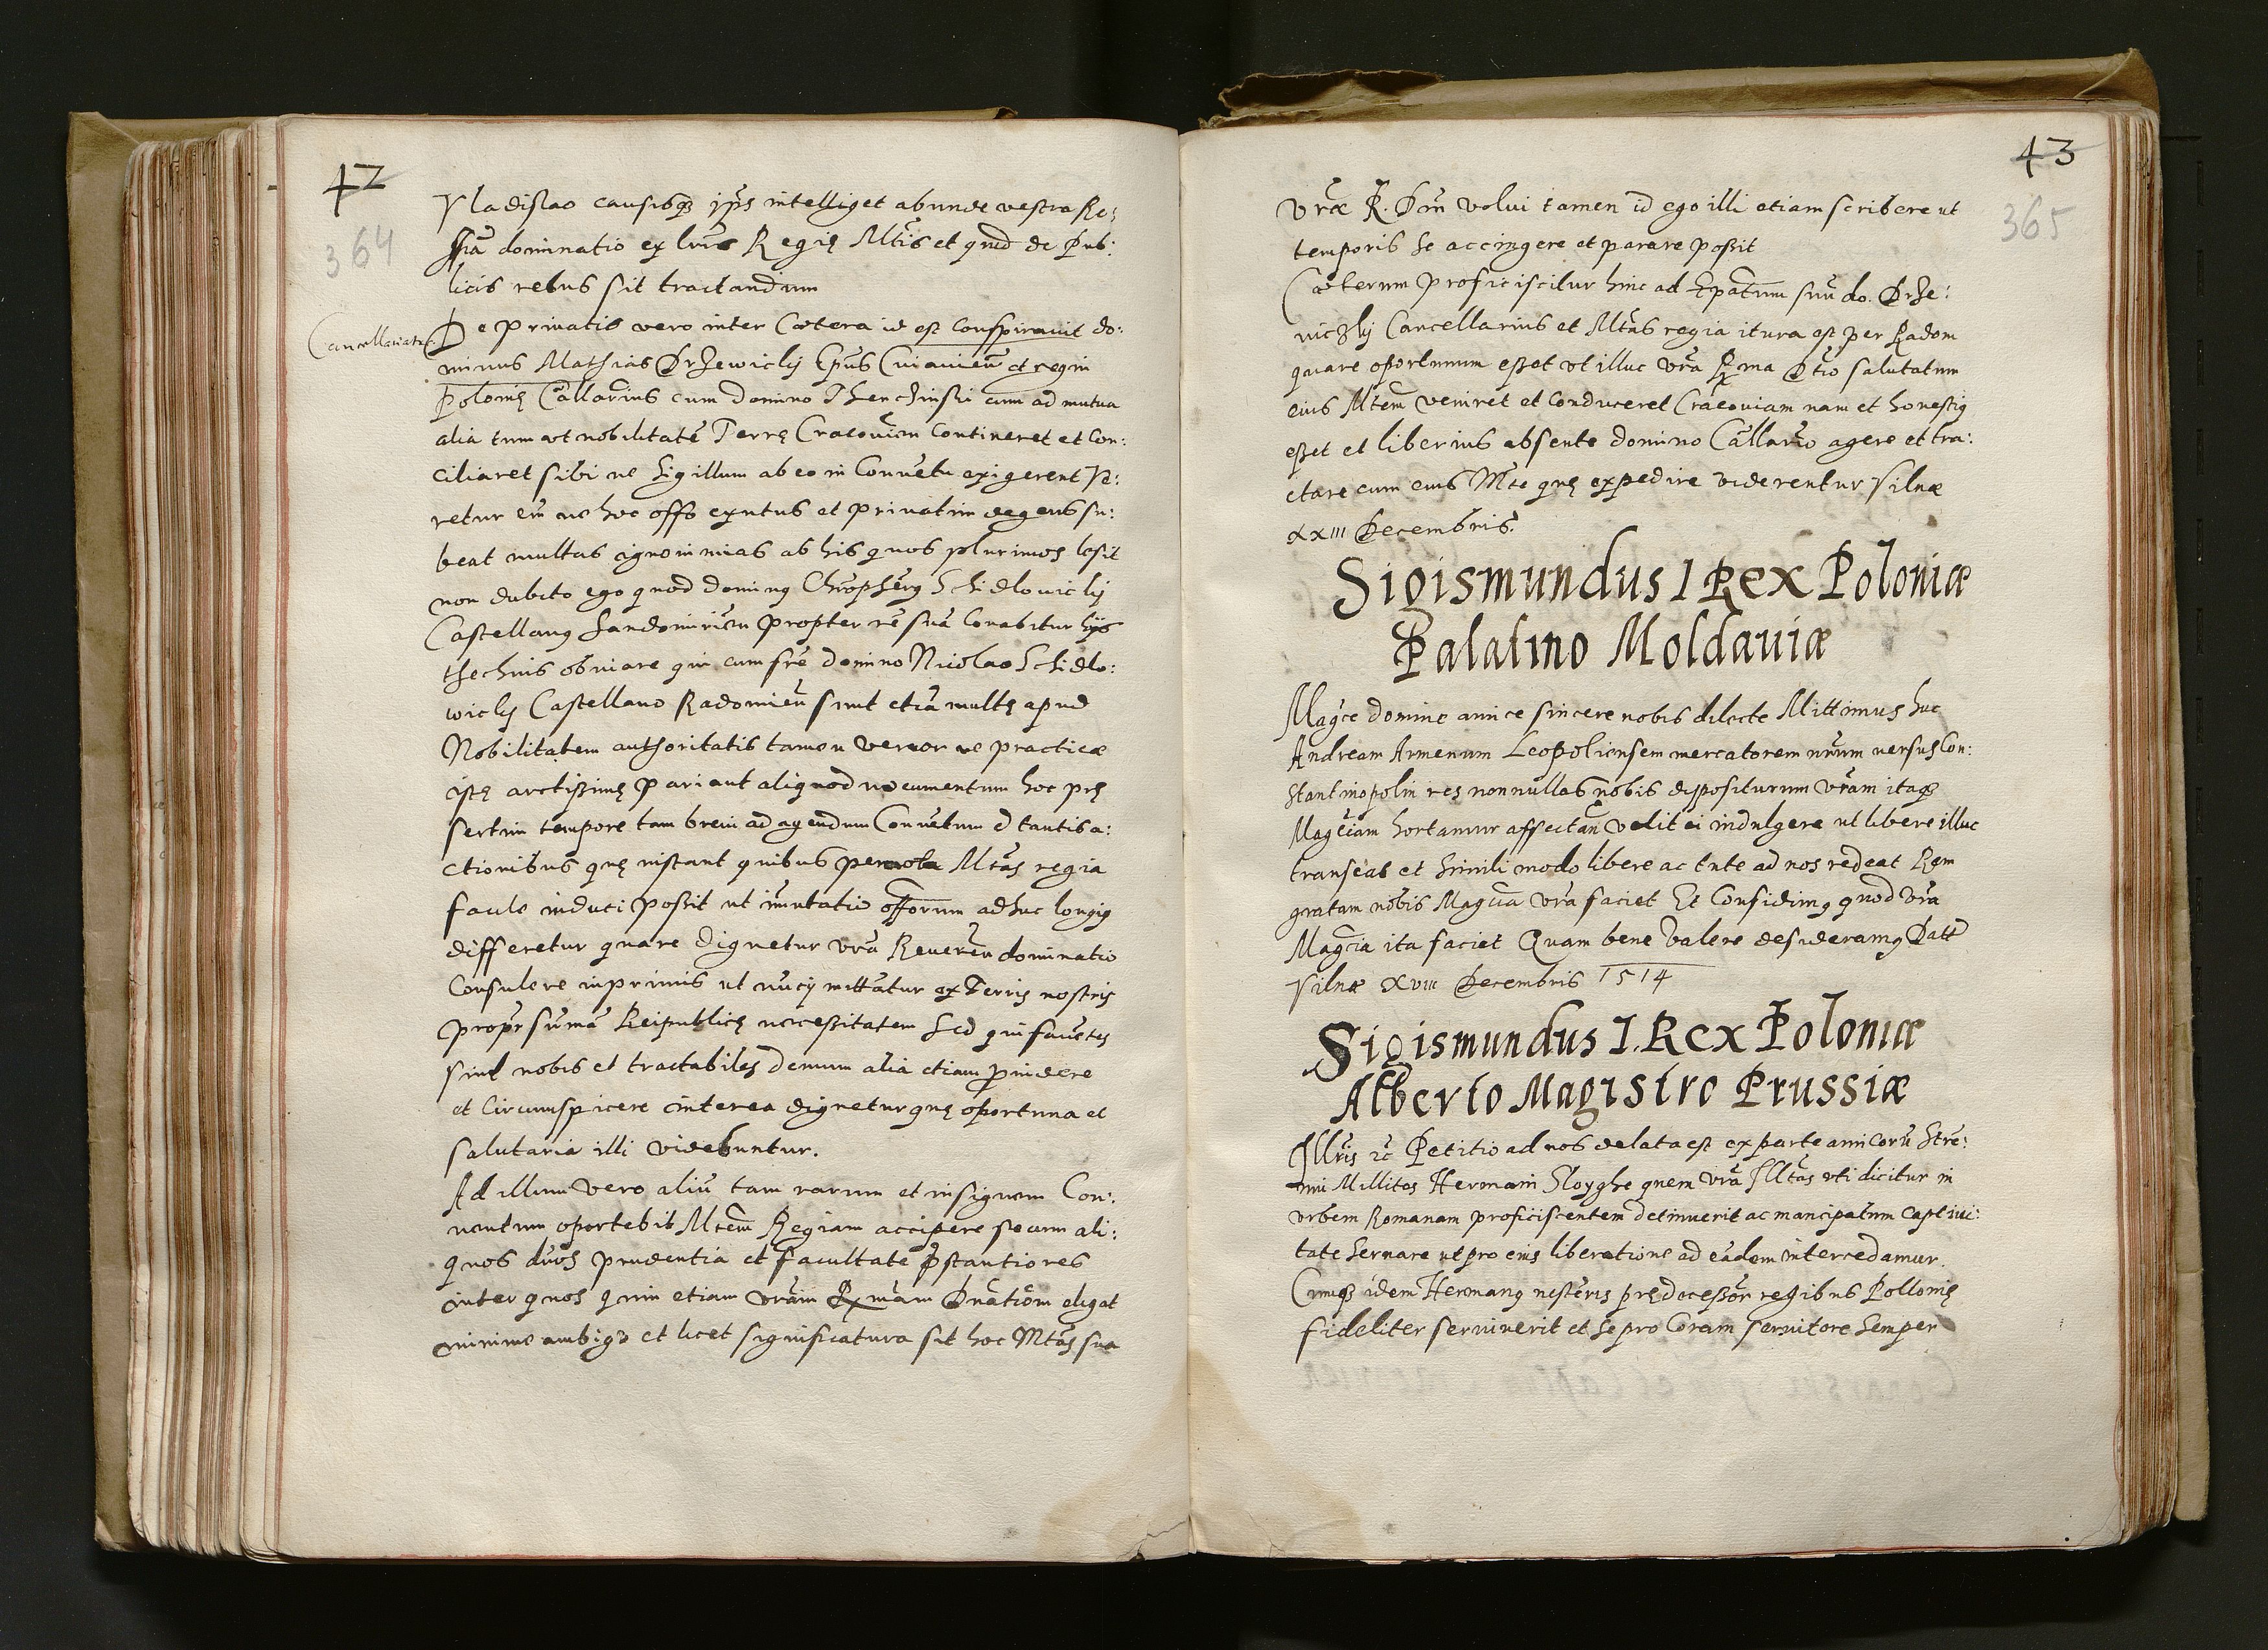 42
364
Vladislao causisq₃ ip̃s intelliget abunde vestra Re:
dominatio ex lr̃is Regię Mt̃is et quid de Pub:
licis rebus sit tractandum
Cancellariatus
De Priuatis vero inter Cætera id est Conspirauit do:
minus Mathias Drzewiclÿ Ep̃us Cuiauieñ et regni
Polonię Cãllarius cum domino Thenczinski cum ad mutua
alia tum vt nobilitatẽ Terrę Cracouien Contineret et Con:
ciliaret sibi ne Sigillum ab eo in Conuẽtu exigerent Ve:
retur em̃ ne hoc offo exutus et priuatim degens su:
beat multas ignominias ab his quos plurimos lesit
non dubito ego quod dominꝰ Chrõpherꝰ Schidlouiclÿ
Castellanꝰ Sandomirien propter rẽ suã Conabitur hÿs
thechnis obuiare qui cum frẽ domino Nicolao Schidlo:
wiclÿ Castellano Radomieñ sunt etiã multę apud
Nobilitatem authoritatis tamen vereor ne practicæ
istę arctissimę Pariant aliquod nocumentum hoc pre
sertim tempore tam breui ad agendum Conuẽtum et tantis a:
ctionibus quę instant quibus Mt̃as regia
facile induci possit ut im̃utatio off̃orum adhuc longiꝰ
differetur quare dignetur vr̃a Reuereñ dominatio
Consulere inprimis ut nũcij mittãtur ex Terris nostris
propr̃ sũmã Reipublicę necessitatem Sed qui fauẽtes
sint nobis et tractabiles demum alia etiam puidere
et Circumspicere interea dignetur quę oportuna et
salutaria illi videbuntur.
Ad illum vero aliũ tam rarum et insignem Con:
uentum oportebit Mt̃em Regiam accipere secum ali:
quos duos prudentia et facultatẽ p̃stantiores
inter quos quin etiam vr̃am Rx̃mam Dnãtiõm eligat
minime ambigo et licet significatura sit hoc Mt̃as sua
43
365
vr̃æ R. Dñi volui tamen id ego illi etiam scribere ut
temporis se accingere et parare possit
Cæterum proficiscitur hinc ad Ep̃atum suũ do. Drze:
uiczlÿ Cancellarius et Mt̃as regia itura est per Radom
quare oportunum esset vt illuc vr̃a Rx̃ma Dt̃io salutatum
eius Mt̃em veniret et Conduceret Cracouiam nam et honestiꝰ
esset et liberius absente domino Cãllario agere et tra:
ctare cum eius Mt̃e quę expedire viderentur Vilnæ
xxiii Decembris.
Sigismundus I Rex Poloniæ
Palatino Moldauiæ
Magc̃e domine amice sincere nobis dilecte Mittimus huc
Andream Armenum Leopoliensem mercatorem nr̃um versus Con:
stantinopolin res nonnullas nobis dispositurum vr̃am itaq₃
Magc̃iam hortamur affectañ velit ei indulgere ut libere illuc
transeat et simili modo libere ac tute ad nos redeat Rem
gratam nobis Magc̃ia vr̃a faciet Et Confidimꝰ quod vr̃a
Magc̃ia ita faciet Quam bene valere desideramꝰ Datt
Vilnæ xviii Decembris 1514
Sigismundus I. Rex Poloniæ
Alberto Magistro Prussiæ
Illr̃is ac Petitio ad nos delata est ex parte amicorũ stre:
nui Millitos Hermani Sloyghe quem vr̃a Illt̃as vti dicitur in
vrbem Romanam proficiscentem detinuerit ac mancipatum captiui:
tate seruare ut pro eius liberatione ad eãdem intercedamur.
Cumq₃ idem Hermanꝰ nosteris pręocessor̃ regibus Pollonię
fideliter seruiuerit et se pro Coram seruitore semper